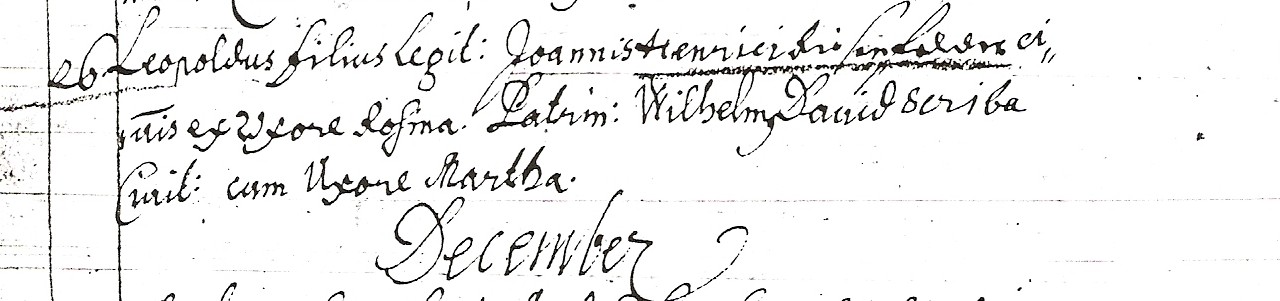 26 Leopoldus filius legit: Joannis Henrici ci„
uis ex Uxore Rosina. Patrin: Wilhelm Dauid Scriba
Ciuit: cum Uxore Martha.
December